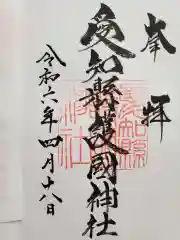 奉拝
愛知縣護國神社
令和六年四月十八日